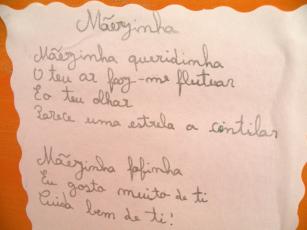 Mãezinha
Mãezinha queridinha
O teu ar faz-me flutuar
Eo teu olhar
Parece uma estrela a cintilar
Mãezinha fofinha
Eu gosto muito de ti
Cuida bem de ti!